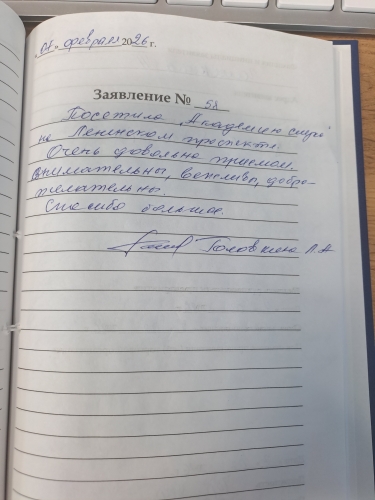 „07" февраля 2026 г.
Заявление № 58
Посетила „Академию слуха"
на Ленинском проспекте.
Очень довольна приемом.
Внимательны, вежливы, добро-
желательны.
Спасибо большое.
Головкина Л.А